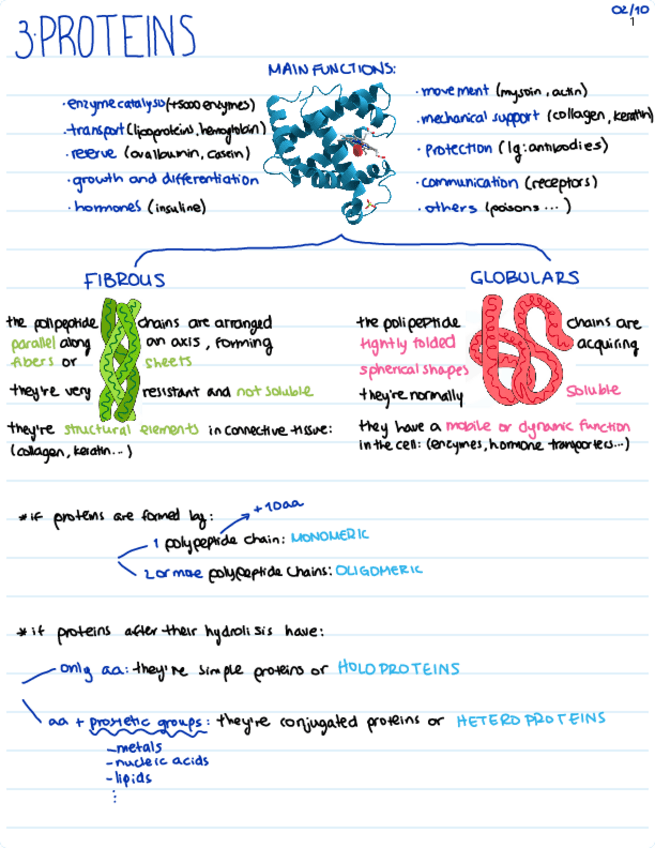 02/10
1
3·PROTEINS
MAIN FUNCTIONS:
·enzyme catalysis (+5000 enzymes)
·transport (lipoproteins, hemoglobin)
·reserve (ovalbumin, casein)
·growth and differentiation
·hormones (insuline)
·movement (myosin, actin)
·mechanical support (collagen, keratin)
·protection (Ig: antibodies)
·communication (receptors)
·others (poisons ...)
FIBROUS
the polipeptide chains are arranged
parallel along an axis, forming
fibers or sheets
they're very resistant and not soluble
they're structural elements in connective tissue:
(collagen, keratin...)
GLOBULARS
the polipeptide chains are
tightly folded acquiring
spherical shapes
they're normally soluble
they have a mobile or dynamic function
in the cell: (enzymes, hormone transporters...)
*if proteins are formed by:
+10aa
1 polypeptide chain: MONOMERIC
2 or more polypeptide chains: OLIGOMERIC
*if proteins after their hydrolisis have:
only aa: they're simple proteins or HOLOPROTEINS
aa + prostetic groups: they're conjugated proteins or HETEROPROTEINS
-metals
-nucleic acids
-lipids
⋮